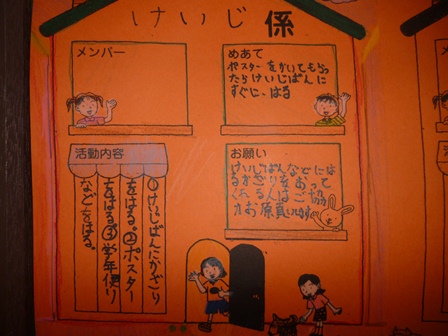 けいじ係
メンバー
めあて
ポスターをかいてもらっ
たらけいじばんに
すぐに、はる
活動内容
①けいじばんにかざり
をはる。②ポスター
をはる③学年便り
などをはる。
お願い
けいじばんなどには
るかざりをおって
くれる人はご協
力お願いします